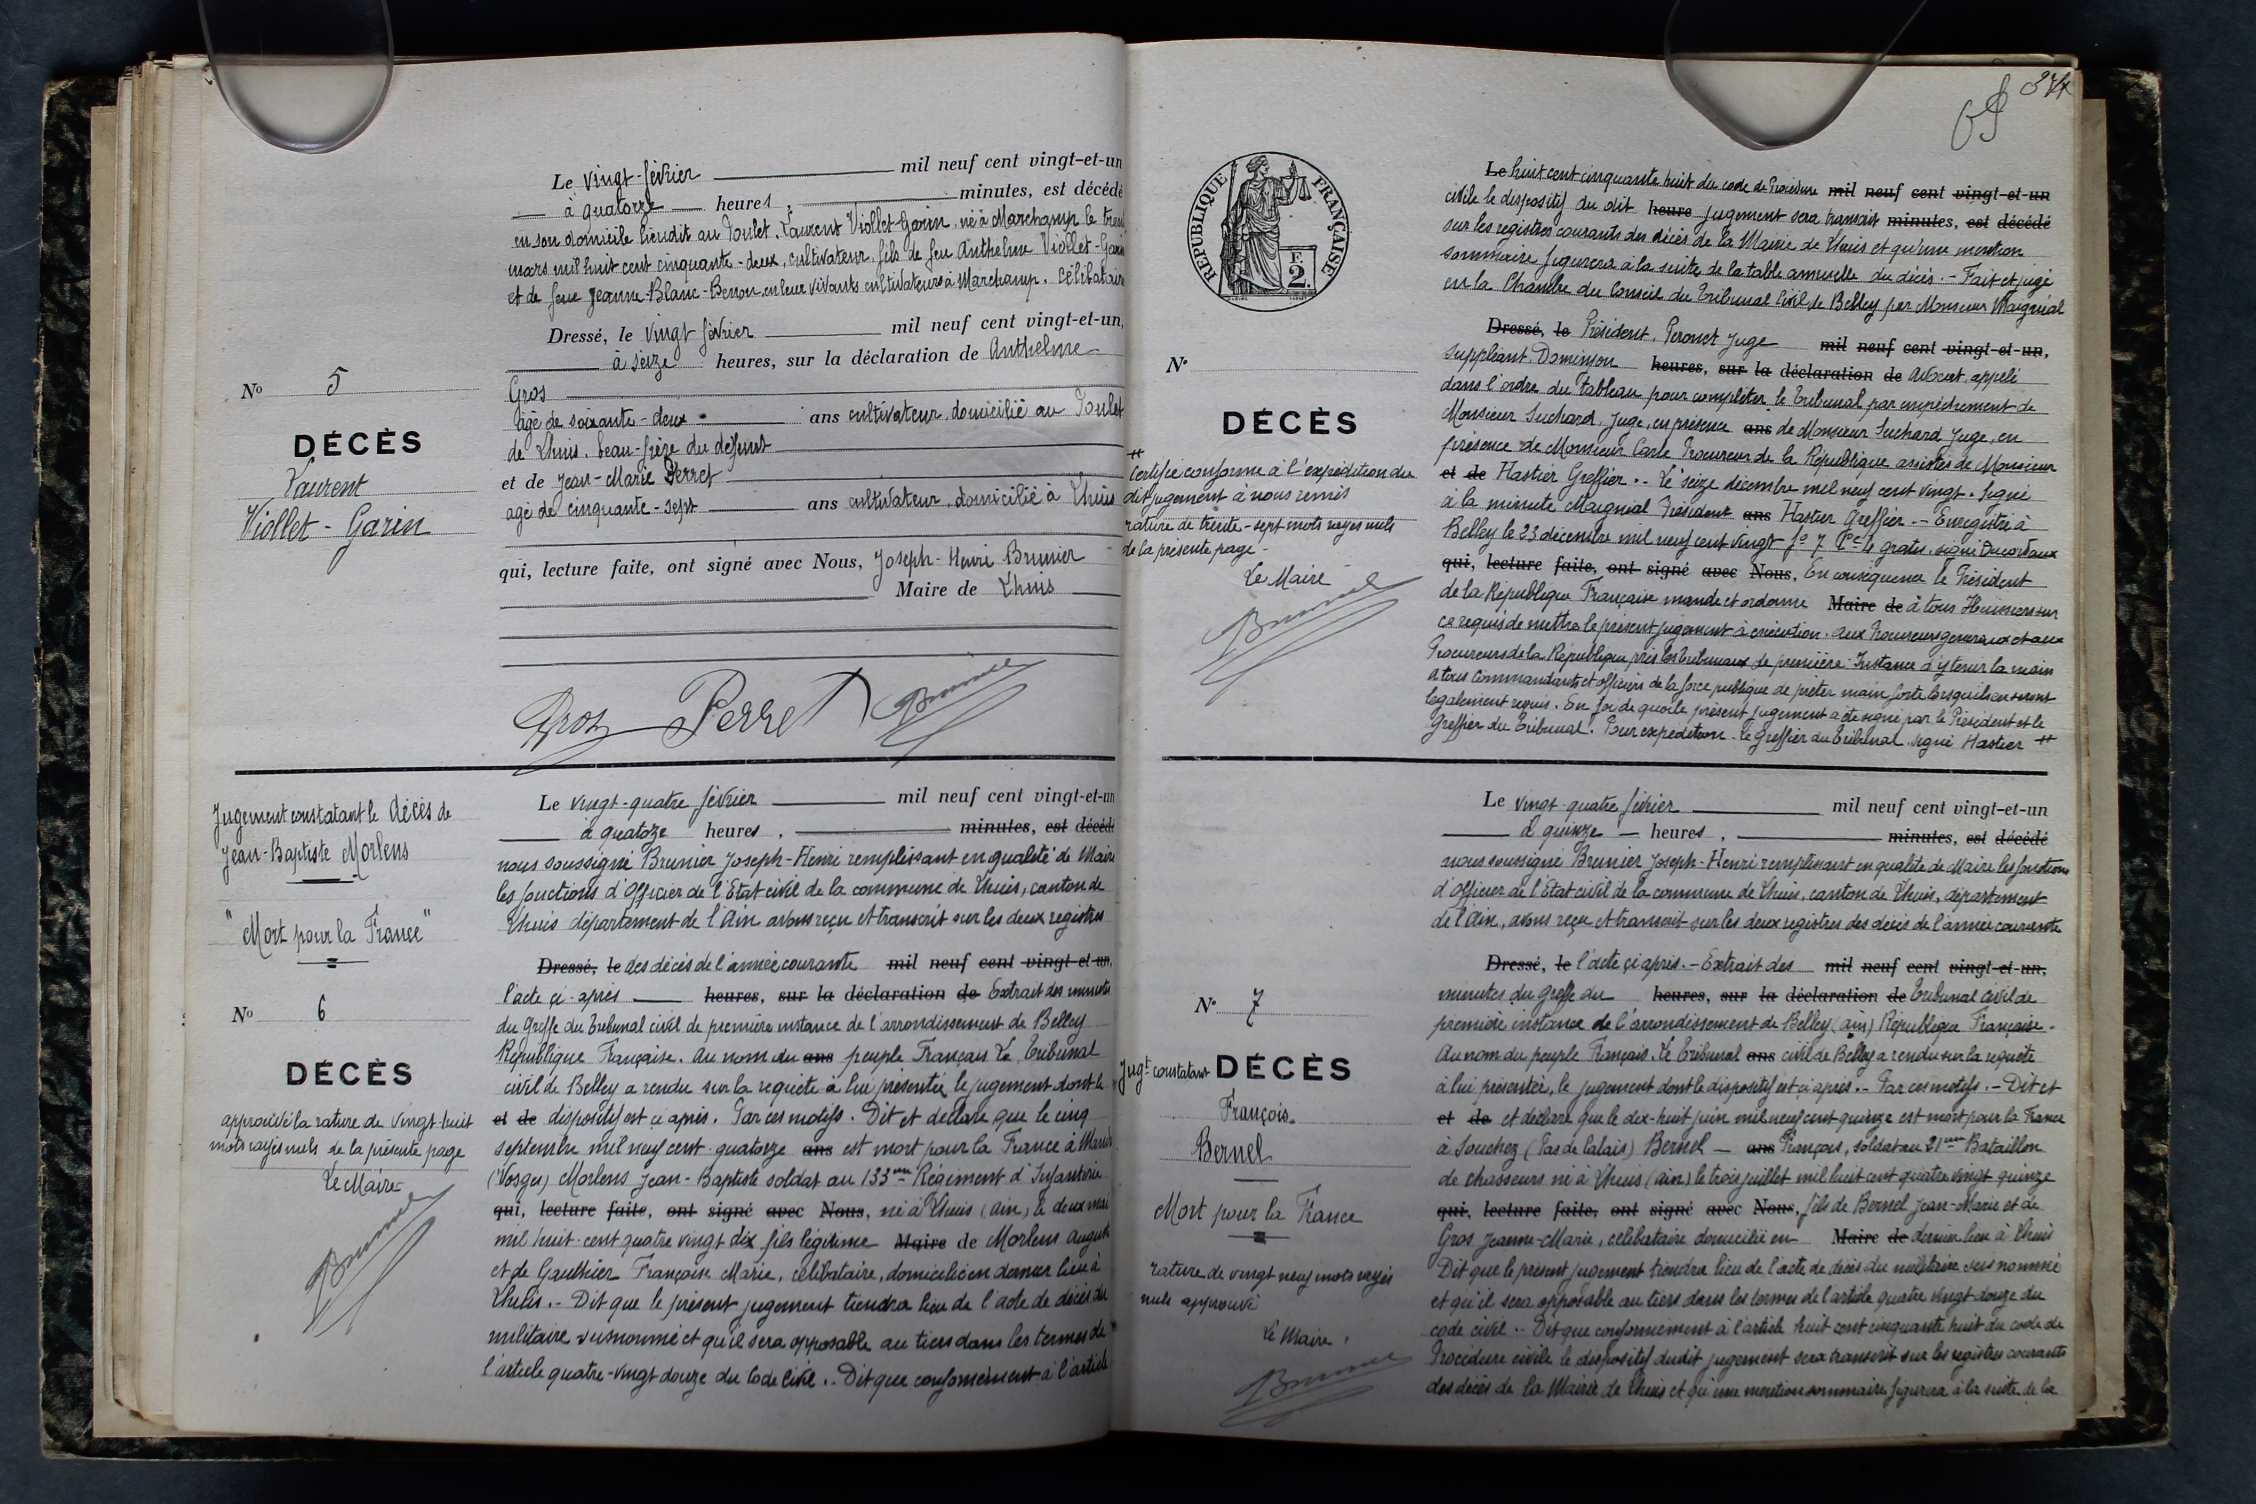 Le vingt-février mil neuf cent vingt-et-un
à quatorze heures, minutes, est décédé
en son domicile lieudit au Poulet, Laurent Viollet-Garin, né à Marchamp le trente
mars mil huit cent cinquante-deux, cultivateur, fils de feu Anthelme Viollet-Garin
et de feue Jeanne Blanc-Benon, en leur vivants cultivateurs à Marchamp. Célibataire
Dressé, le vingt février mil neuf cent vingt-et-un,
à seize heures, sur la déclaration de Anthelme
Gros
âgé de soixante-deux ans cultivateur, domicilié au Poulet
de Lhuis, beau-frère du défunt
et de Jean-Marie Perret
agé de cinquante-sept ans cultivateur, domicilié à Lhuis
qui, lecture faite, ont signé avec Nous, Joseph-Henri Brunier
Maire de Lhuis
Gros Perret Brunier
No 5
DÉCÈS
Laurent
Viollet-Garin
Jugement constatant le décès de
Jean-Baptiste Morlens
"Mort pour la France"
No 6
DÉCÈS
approuvé la rature de vingt-huit
mots rayés nuls de la présente page
Le Maire
Brunier
Le vingt-quatre février mil neuf cent vingt-et-un
à quatoze heures, minutes, est décédé
nous soussigné Brunier Joseph-Henri remplissant en qualité de Maire
les fonctions d'Officier de l'Etat civil de la commune de Lhuis, canton de
Lhuis département de l'Ain avons reçu et transcrit sur les deux registres
Dressé, le des décès de l'année courante mil neuf cent vingt-et-un,
l'acte çi-après heures, sur la déclaration de Extrait des minutes
du Greffe du Tribunal civil de première instance de l'arrondissement de Belley
République Française. Au nom du ans peuple Francais Le Tribunal
civil de Belley a rendu sur la requête à lui présentée le jugement dont le
et de dispositif est çi après. Par ces motifs. Dit et déclare que le cinq
septembre mil neuf cent quatorze ans est mort pour la France à
(Vosges) Morlens Jean-Baptiste soldat au 133me Régiment d'Infanterie
qui, lecture faite, ont signé avec Nous, né à Lhuis (ain) le deux mai
mil huit-cent quatre vingt dix fils légitime Maire de Morlens Auguste
et de Gauthier Françoise Marie, célibataire, domicilié en dernier lieu à
Lhuis.- Dit que le présent jugement tiendra lieu de l'acte de décès du
militaire susnommé et qu'il sera opposable au tiers dans les termes de
l'article quatre-vingt douze du Code Civil.. Dit que conformément à l'article
374
Le huit cent cinquante huit du code de Procédure mil neuf cent vingt-et-un
civile le dispositif du dit heure jugement sera transcrit minutes, est décédé
sur les registres courants des décès de la Mairie de Lhuis et qu'une mention
sommaire figurera à la suite de la table annuelle du décès.- Fait et jugé
en la Chambre du Conseil du Tribunal Civil de Belley par Monsieur Maigniial
Dressé, le Président, Peronet Juge mil neuf cent vingt-et-un,
suppléant. Dominjon heures, sur la déclaration de Avocat, appelé
dans l'ordre du tableau pour compléter le Tribunal par empêchement de
Monsieur Suchard, Juge, en présence ans de Monsieur Suchard Juge, en
présence de Monsieur Carle Procureur de la République assistés de Monsieur
et de Hastier Greffier.- Le seize décembre mil neuf cent vingt. Signé
à la minute Maignial Président ans Hastier Greffier.- Enregistré à
Belley le 23 décembre mil neuf cent vingt fo 7 Ce 4 gratis. signé Ducordaux
qui, lecture faite, ont signé avec Nous, En conséquence le Président
de la République Française mande et ordonne Maire de à tous Huissiers sur
ce requis de mettre le présent jugement à exécution. aux Procureurs généraux et aux
Procureurs de la République près les tribunaux de première Instance d'y tenir la main
a tous Commandants et officiers de la force publique de prêter main forte lorsquils en seront
légalement requis. En foi de quoi le présent jugement a été signé par le Président et le
Greffier du Tribunal. Pour expédition. le Greffier du Tribunal. signé Hastier #
RÉPUBLIQUE FRANÇAISE
F.
2.
No
DÉCÈS
#
Certifié conforme à l'expédition du
dit jugement à nous remis
rature de trente-sept mots rayés nuls
de la présente page -
Le Maire
Brunier
Le vingt quatre février mil neuf cent vingt-et-un
à quinze heures, minutes, est décédé
nous soussigné Brunier Joseph-Henri remplissant en qualité de Maire les fonctions
d'Officier de l'Etat civil de la commune de Lhuis, canton de Lhuis, département
de l'Ain, avons reçu et transcrit sur les deux registres des décès de l'année courante
Dressé, le l'acte çi après.- Extrait des mil neuf cent vingt-et-un,
minutes du greffe du heures, sur la déclaration de Tribunal civil de
première instance de l'arrondissement de Belley (ain) République Française.
Au nom du peuple Français. Le Tribunal ans civil de Belley a rendu sur la requête
à lui présentée, le jugement dont le dispositif est çi après.- Par ces motifs.- Dit et
et de et déclare que le dix-huit juin mil neuf cent quinze est mort pour la France
à Souchez (Pas de Calais) Bernel - ans François, soldat au 21me Bataillon
de chasseurs né à Lhuis (ain) le trois juillet mil huit cent quatre vingt quinze
qui, lecture faite, ont signé avec Nous, fils de Bernel Jean-Marie et de
Gros Jeanne-Marie, célibataire domicilié en Maire de dernier lieu à Lhuis
Dit que le présent jugement tiendra lieu de l'acte de décès du militaire sus nommé
et qu'il sera opposable au tiers dans les termes de l'article quatre vingt-douze du
code civil.. Dit que conformément à l'article huit cent cinquante huit du code de
Procédure civile le dispositif dudit jugement sera transcrit sur les registres courants
des décès de la Mairie de Lhuis et qu'une mention sommaire figurera à la suite de la
No 7
Jugt constatant DÉCÈS
François
Bernel
Mort pour la France
rature de vingt neuf mots rayés
nuls approuvé
Le Maire,
Brunier